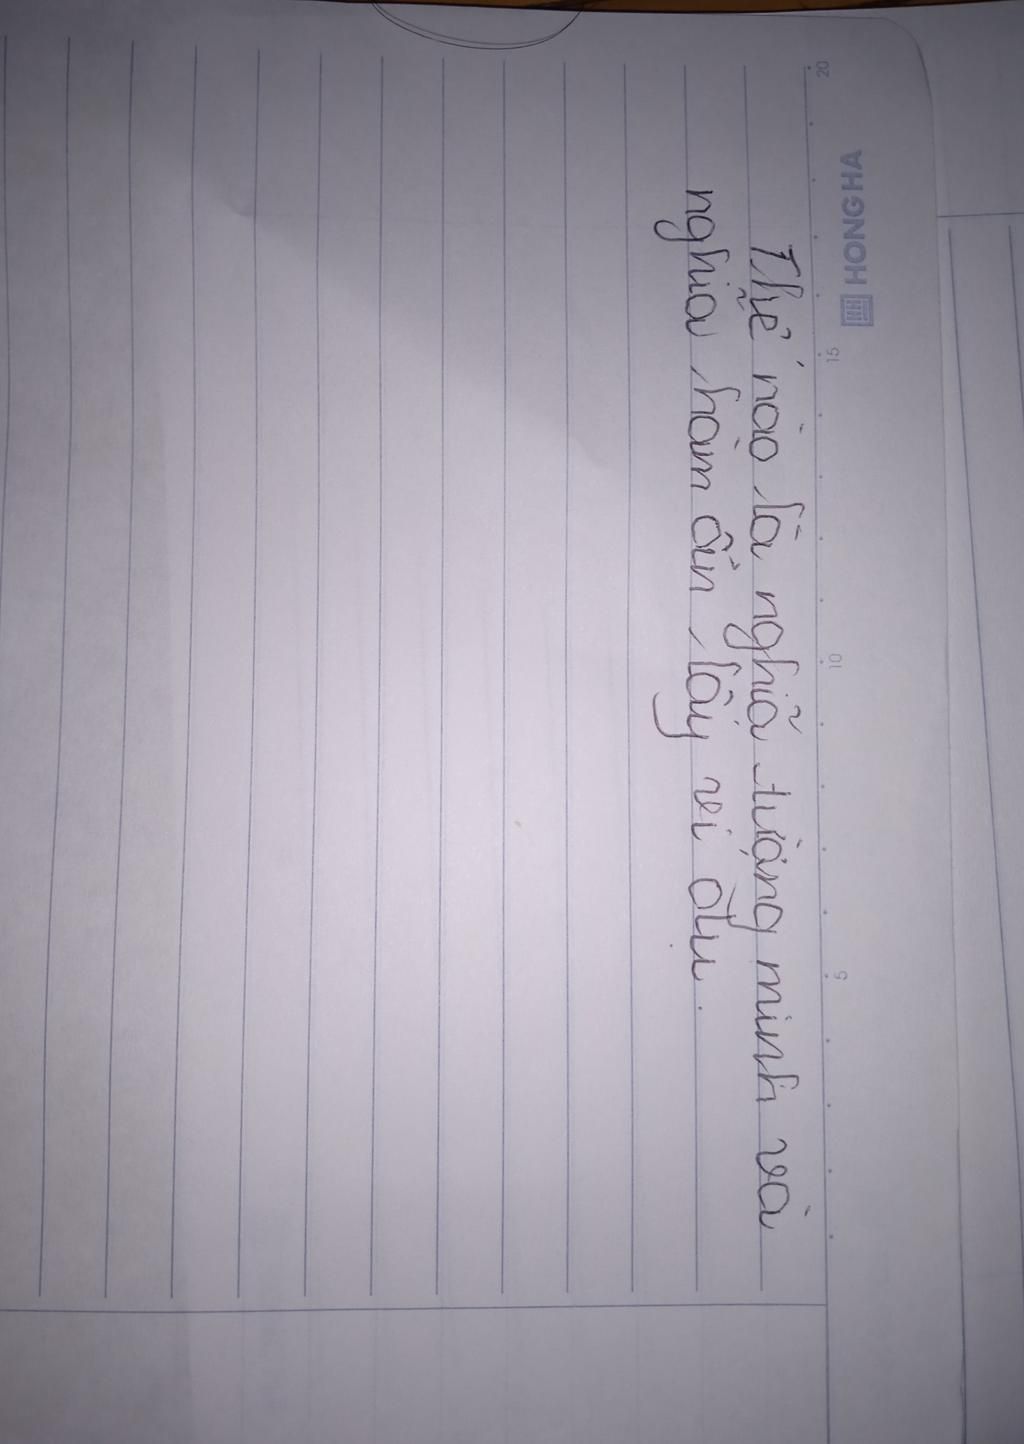 HONG HA
20 15 10 5
Thế nào là nghĩa tường minh và
nghĩa hàm ẩn lấy ví dụ.